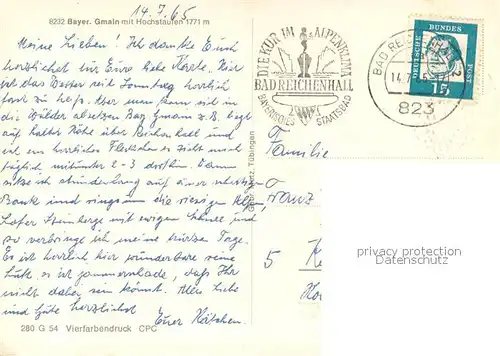 14.7.65
8232 Bayer. Gmain mit Hochstaufen 1771 m
Meine Lieben! Ich danke Euch
herzlichst für Eure liebe Karte. Hier
ist das Wetter seit Sonntag herrlich
fast zu heiß. Aber man kann sich in
die Wälder absetzen Bay Gmain z.B. liegt
auf halber Höhe über Reichenhall und
ist ein herrliches Fleckchen es zieht mich
täglich mitunter 2-3 dorthin. Dann
sitze ich stundenlang auf einer
Bank und ringsum die riesigen Alpen,
Loferer Steinberge mit ewigem Schnee und
so verbringe ich meine Tage.
Es ist herrlich hier wunderbare reine
Luft. es ist jammerschade, daß Ihr
nicht dabei sein könnt. Alles Liebe
und Gute herzlichst
Eure
280 G 54 Vierfarbendruck CPC
Tübingen
DIE KUR IM ALPENKLIMA
BAD REICHENHALL
BAYERISCHES STAATSBAD
BAD REI
14.7.
823
DEUTSCHE BUNDESPOST
15
Familie
Franz
5
privacy protection
watermark